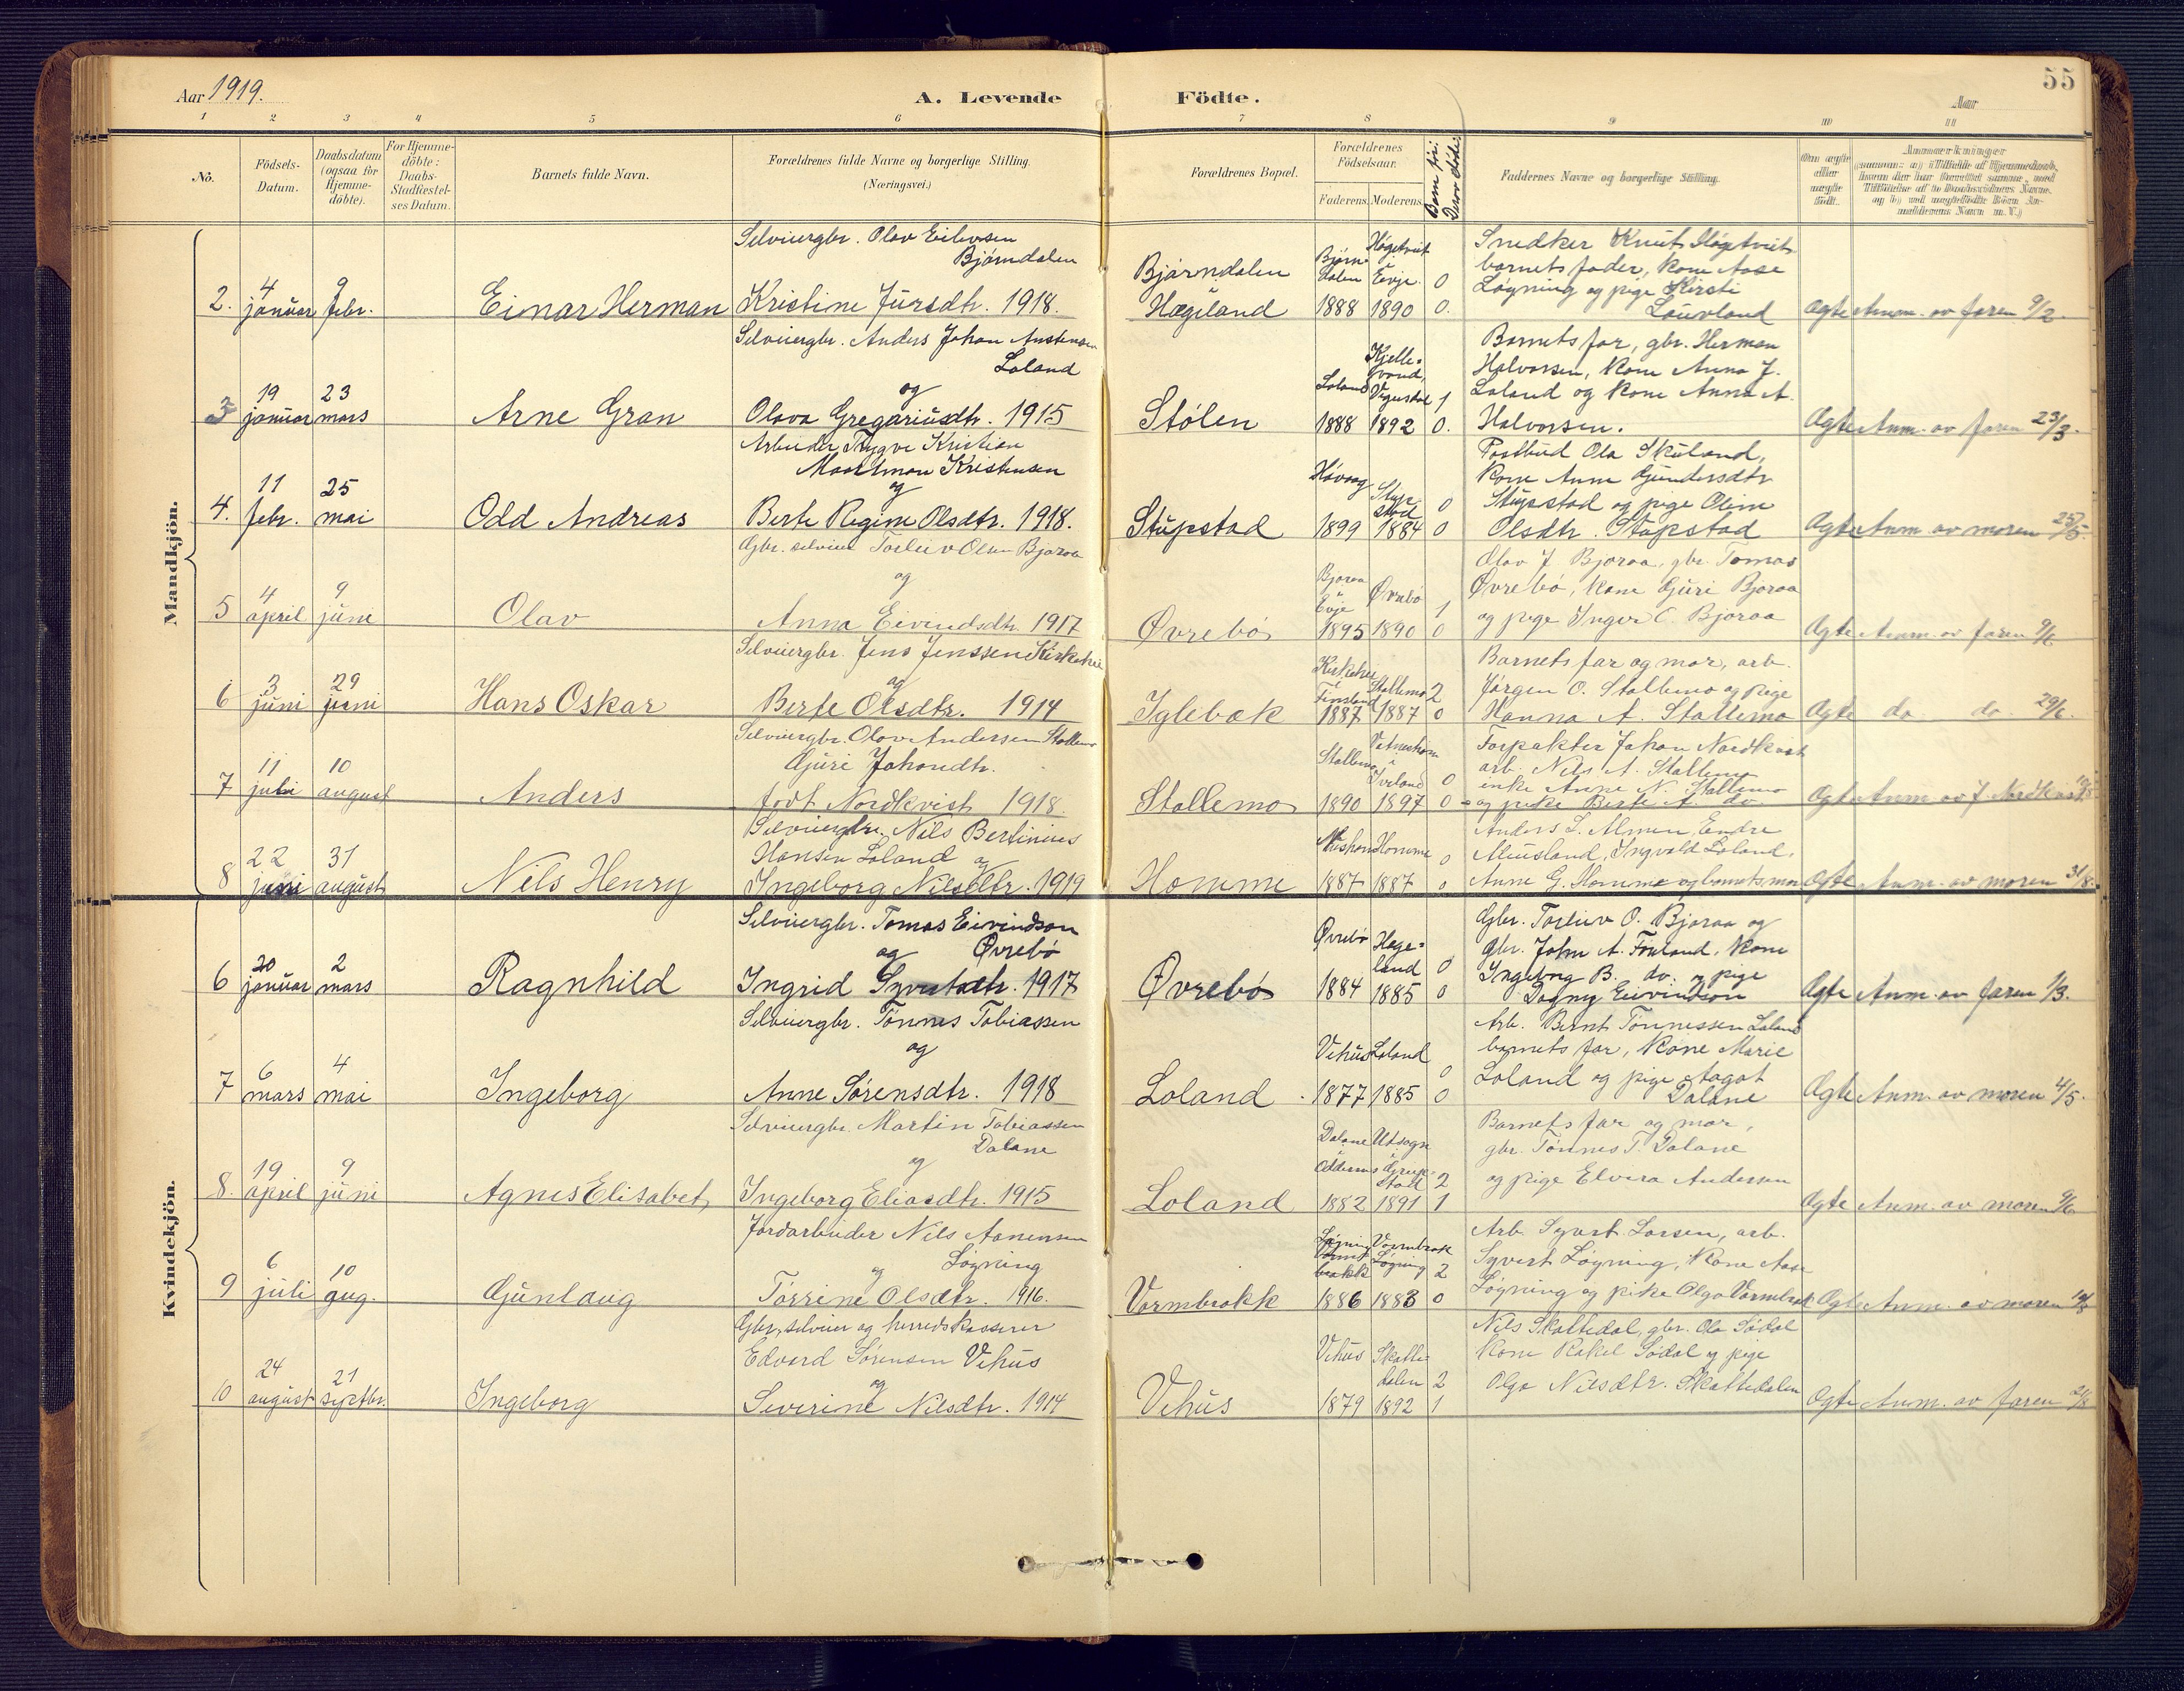 55
Aar 1919.
A. Levende Födte.
1 2 3 4 5 6 7 8 9 10 11
No.
Födsels-
Datum.
Daabsdatum
(ogsaa for
Hjemme-
döbte).
For Hjemme-
döbte:
Daabs-
Stadfæstel-
ses Datum.
Barnets fulde Navn.
Forældrenes fulde Navne og borgerlige Stilling.
(Næringsvei.)
Forældrenes Bopæl.
Forældrenes
Födselsaar.
Faderens. Moderens.
Barn før.
Derav døde:
Faddernes Navne og borgerlige Stilling.
Om ægte
eller
uægte
födt.
Mandkjön.
2.
4
januar
9
febr.
Einar Herman
Selveiergbr. Olav Eilevsen
Bjørndalen
Kristine Jursdtr. 1918.
Bjørndalen
i
Hægeland
Bjørn-
dalen
1888
Høgetveit
i
Evje.
1890
0
0.
Snedker Knut Høgetveit
barnets fader, kone Aase
Løyning og pige Kirsti
Lauvland
Ægte Anm. av faren 9/2.
3
19
januar
23
mars
Arne Gran
Selveiergbr. Anders Johan Austensen
Loland
og
Olava Gregariusdtr. 1915
Stølen
Loland
1888
Kjelle-
vand,
Vegusdal
1892
1
0.
Barnets far, gbr. Herman
Halvorsen, kone Anna J.
Loland og kone Anna A.
Halvorsen.
Ægte Anm. av faren 23/3.
4.
11
febr.
25
mai
Odd Andreas
Arbeider Trygve Kristian
Kristensen
og
Berte Regine Olsdtr. 1918.
Stupstad
Høvaag
1899
Stup-
stad
1884
0
0
Postbud Ola Skuland,
kone Anne Gundersdtr
Stupstad og pige Oline
Olsdtr. Stupstad
Ægte Anm. av moren 25/5.
5
4
april
9
juni
Olav
Gbr. selveier Torleiv Olsen Bjoraa
og
Anna Eivindsdtr. 1917
Øvrebø
Bjoraa
i
Evje
1895
Øvrebø
1890
1
0
Olav J. Bjoraa, gbr. Tomas
Øvrebø, kone Guri Bjoraa
og pige Inger C. Bjoraa
Ægte Anm. av faren 9/6
6
3
juni
29
juni
Hans Oskar
Selveiergbr. Jens Jenssen Kirkehei
og
Berte Olsdtr. 1914
Iglebæk
Kirkehei
i
Finsland
1887
Stallemo
1887
2
0
Barnets far og mor, arb.
Jørgen O. Stallemo og pige
Hanna A. Stallemo
Ægte do do 29/6.
7
11
juli
10
august
Anders
Selveiergbr. Olav Andersen Stallemo
Guri Johansdtr.
født Nordkvist 1918.
Stallemo
Stallemo
1890
i
Iveland
1897
0
0
Forpakter Johan Nordkvist
arb. Nils A. Stallemo
enke Anne N. Stallemo
og pike Berte A. do
Ægte Anm. av J. Nordkvist 10/8
8
22
juni
31
august
Nils Henry
Selveiergbr. Nils Bertinius
Hansen Loland og
Ingeborg Nilsdtr. 1919
Homme
1887
Homme
1887
0
0
Anders L. Almen, Endre
Ingvald Loland,
Anne G. Homme og barnets mor
Ægte Anm. av moren 31/8.
Kvindekjön.
6
30
januar
2
mars
Ragnhild
Selveiergbr. Tomas Eivindson
og Øvrebø
Ingrid Syvertsdtr. 1917
Øvrebø
Øvrebø
1884
Hæge-
land
1885
0
0
Gbr. Torleiv O. Bjoraa og
gbr. John A. Fouland, kone
Ingeborg B. do. og pige
Dagny Eivindson
Ægte Anm. av faren 1/3.
7
6
mars
4
mai
Ingeborg
Selveiergbr. Tønnes Tobiassen
og
Anne Sørensdtr. 1918
Loland
Vehus
1877
Loland
1885
0
0
Arb. Bernt Tønnessen Loland
barnets far, kone Marie
Loland og pige Aagot
Dalane
Ægte Anm. av moren 4/5.
8.
19
april
9
juni
Agnes Elisabet
Selveiergbr. Martin Tobiassen
Dalane
og
Ingeborg Eliasdtr. 1915
Loland
Dalane
i
Oddernes
1882
Utsogn
i
1891
2
1
Barnets far og mor,
gbr. Tønnes T. Dalane
og pige Elvira Andersen
Ægte Anm. av moren 9/6
9
6
juli
10
aug.
Gunlaug
Jordarbeider Nils Aanensen
Løyning
og
Torrine Olsdtr. 1916.
Vormbrokk
1886
Vormbrokk
Løyning
1883
2
0
Arb. Syvert Larsen, arb.
Syvert Løyning, kone Aase
Løyning og pike Olga Vormbrok
Ægte Anm. av moren 10/8
10
24
august
21
septbr.
Ingeborg
Gbr, selveier og herredskasserer
Edvard Sørensen Vehus
og
Severine Nilsdtr. 1914
Vehus
Vehus
1879
Skatte-
dalen
1892
2
1
Nils Skattedal, gbr. Ola Sødal
kone Rakel Sødal og pige
Olga Nilsdtr. Skattedalen
Ægte Anm. av faren